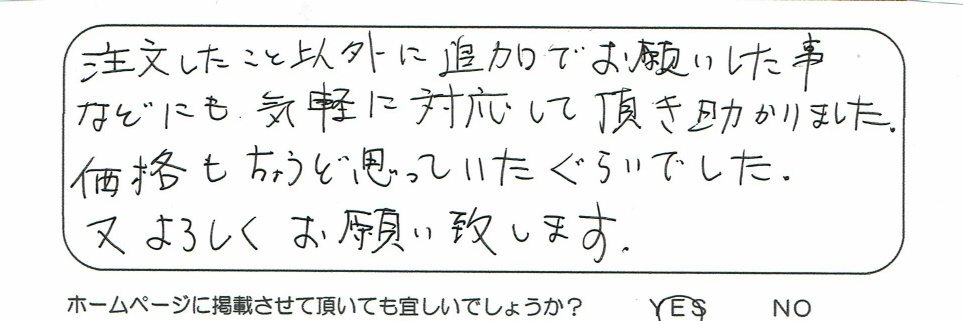 注文したこと以外に追加でお願いした事
などにも気軽に対応して頂き助かりました。
価格もちょうど思っていたぐらいでした。
又よろしくお願い致します。
ホームページに掲載させて頂いても宜しいでしょうか？ YES NO